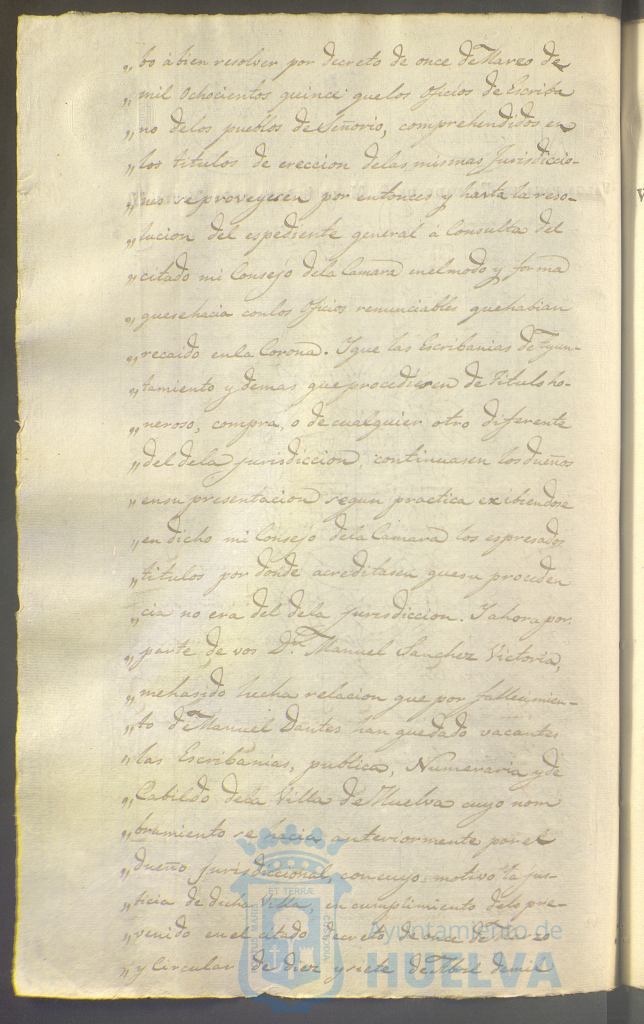 „ bo á bien resolver por decreto de once de Marzo de
„ mil Ochocientos quince que los Oficios de Escriba
„ no delos pueblos de Señorio, comprehendidos en
„ los titulos de ereccion delas mismas Jurisdiccio-
„ nes se proveyesen por entonces y hasta la reso-
„ lucion del espediente general á Consulta del
„ citado mi Consejo dela Camara enelmodo y forma
„ quesehacia conlos Oficios renunciables quehabian
„ recaido enla Corona. Y que las Escribanias de Ayun-
„ tamiento y demas que procediesen de Titulo ho-
„ neroso, compra, o de cualquier otro diferente
„ del dela jurisdiccion, continuasen los dueños
„ ensu presentacion segun practica exibiendose
„ en dicho mi Consejo dela Camara los espresados
„ titulos por donde acreditasen quesu proceden
„ cia no era del dela jurisdiccion. Y ahora por
„ parte de vos Dn. Manuel Sanchez Victoria,
„ mehasido hecha relacion que por fallecimien-
„ to dn Manuel Dantes han quedado vacantes
„ las Escribanias, publica, Numeraria y de
„ Cabildo dela Villa de Huelva cuyo nom
„ bramiento se hacia anteriormente por el
„ dueño Jurisdiccional, con cuyo motivo la jus-
„ ticia de dicha Villa, en cumplimiento delo pre-
„ venido en el citado decreto de once de Marzo
„ y Circular de diez y siete de Abril demil
ET TERRÆ
Ayuntamiento de
HUELVA